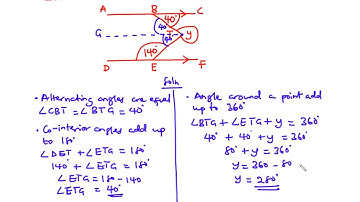 A B C
40°
G 40° T y
40°
140°
D E F
Soln
• Alternating angles are equal
∠CBT = ∠BTG = 40°
• Co-interior angles add up
to 180°
∠DET + ∠ETG = 180°
140 + ∠ETG = 180°
∠ETG = 180 - 140
∠ETG = 40°
• Angle around a point add
up to 360°
∠BTG + ∠ETG + y = 360°
40° + 40° + y = 360°
80° + y = 360°
y = 360 - 80
y = 280°